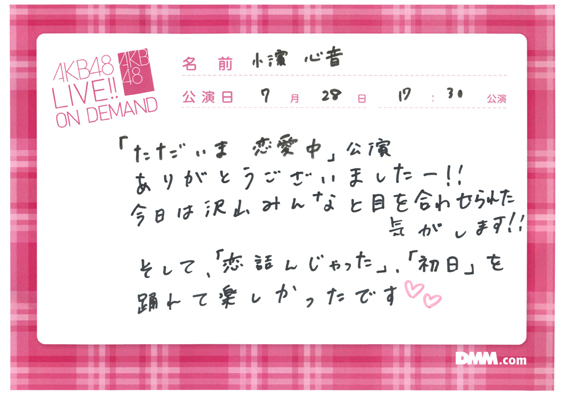 AKB48
LIVE!!
ON DEMAND
AKB
48
名前 小濱 心音
公演日 7月 28日 17:30 公演
「ただいま 恋愛中」公演
ありがとうございましたー!!
今日は沢山みんなと目を合わせられた
気がします!!
そして、「恋詰んじゃった」、「初日」を
踊れて楽しかったです♡♡
DMM.com